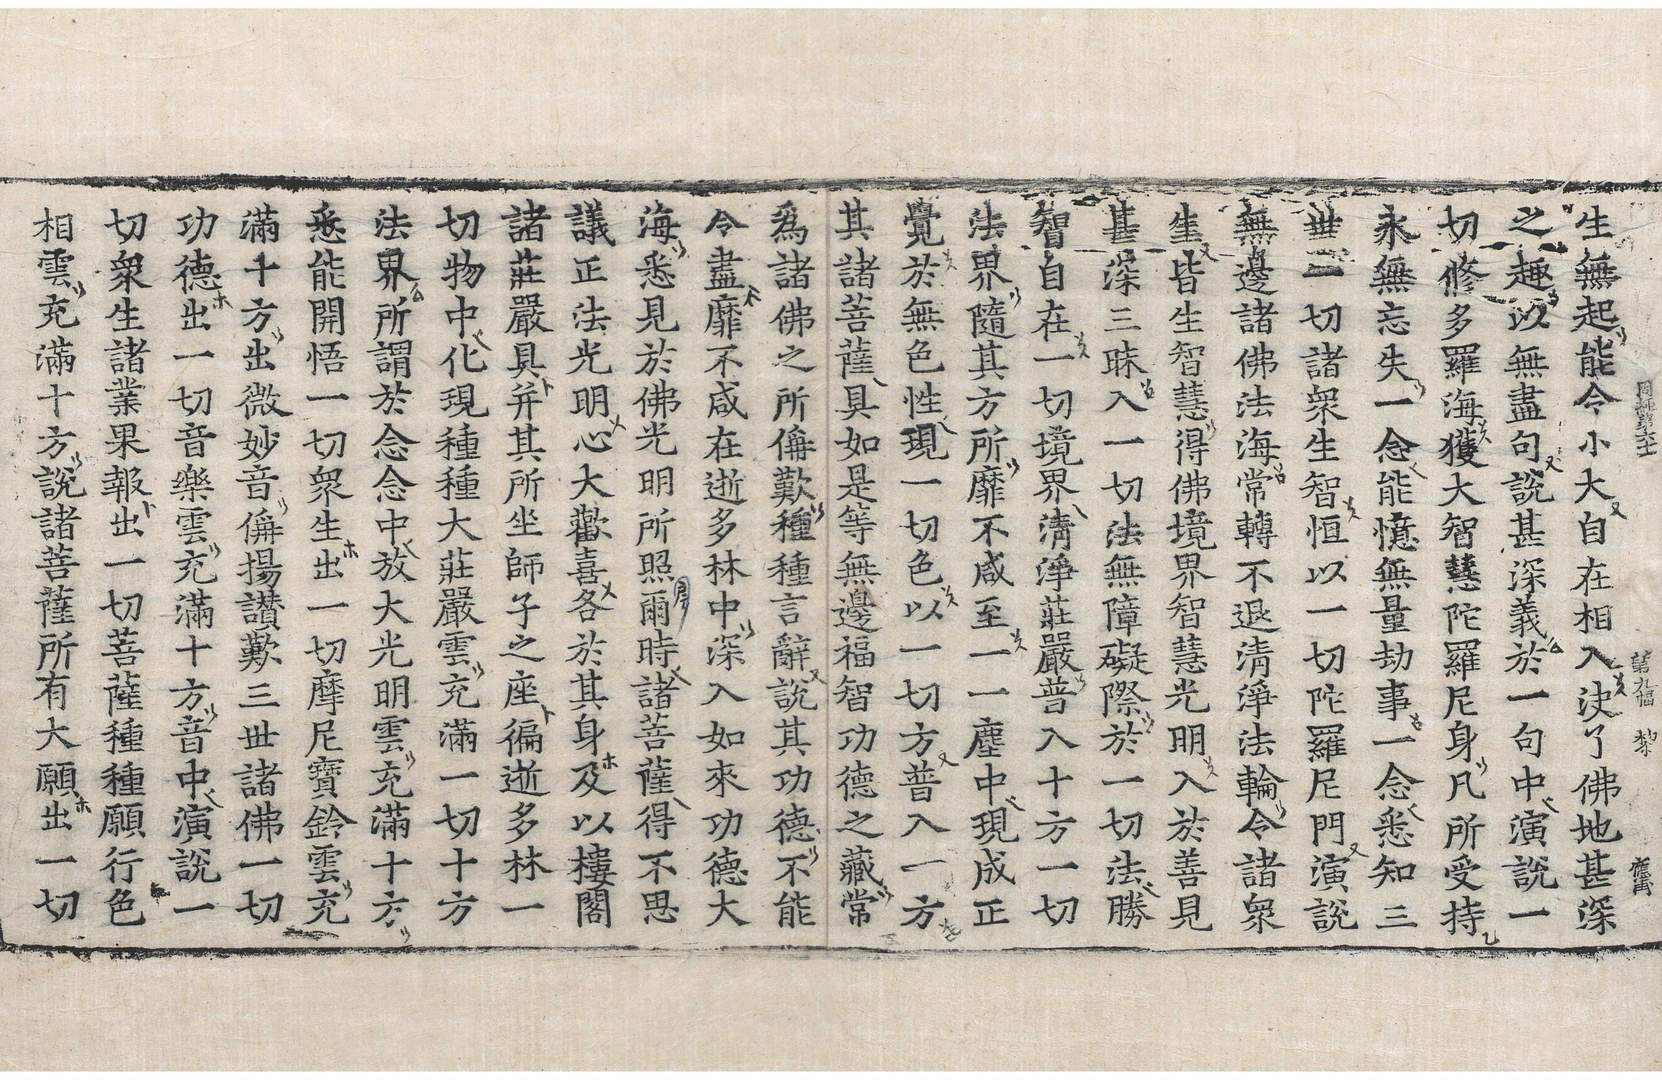 生無起能令小大自在相入決了佛地甚深
之趣以無盡句說甚深義於一句中演說一
切修多羅海獲大智慧陀羅尼身凡所受持
永無忘失一念能憶無量劫事一念悉知三
世一切諸衆生智恒以一切陀羅尼門演說
無邊諸佛法海常轉不退清淨法輪令諸衆
生皆生智慧得佛境界智慧光明入於善見
甚深三昧入一切法無障礙際於一切法勝
智自在一切境界清淨莊嚴普入十方一切
法界隨其方所靡不咸至一一塵中現成正
覺於無色性現一切色以一切方普入一方
其諸菩薩具如是等無邊福智功德之藏常
爲諸佛之所偁歎種種言辭說其功德不能
令盡靡不咸在逝多林中深入如來功德大
海悉見於佛光明所照爾時諸菩薩得不思
議正法光明心大歡喜各於其身及以樓閣
諸莊嚴具并其所坐師子之座徧逝多林一
切物中化現種種大莊嚴雲充滿一切十方
法界所謂於念念中放大光明雲充滿十方
悉能開悟一切衆生出一切摩尼寶鈴雲充
滿十方出微妙音偁揚讃歎三世諸佛一切
功德出一切音樂雲充滿十方音中演說一
切衆生諸業果報出一切菩薩種種願行色
相雲充滿十方說諸菩薩所有大願出一切